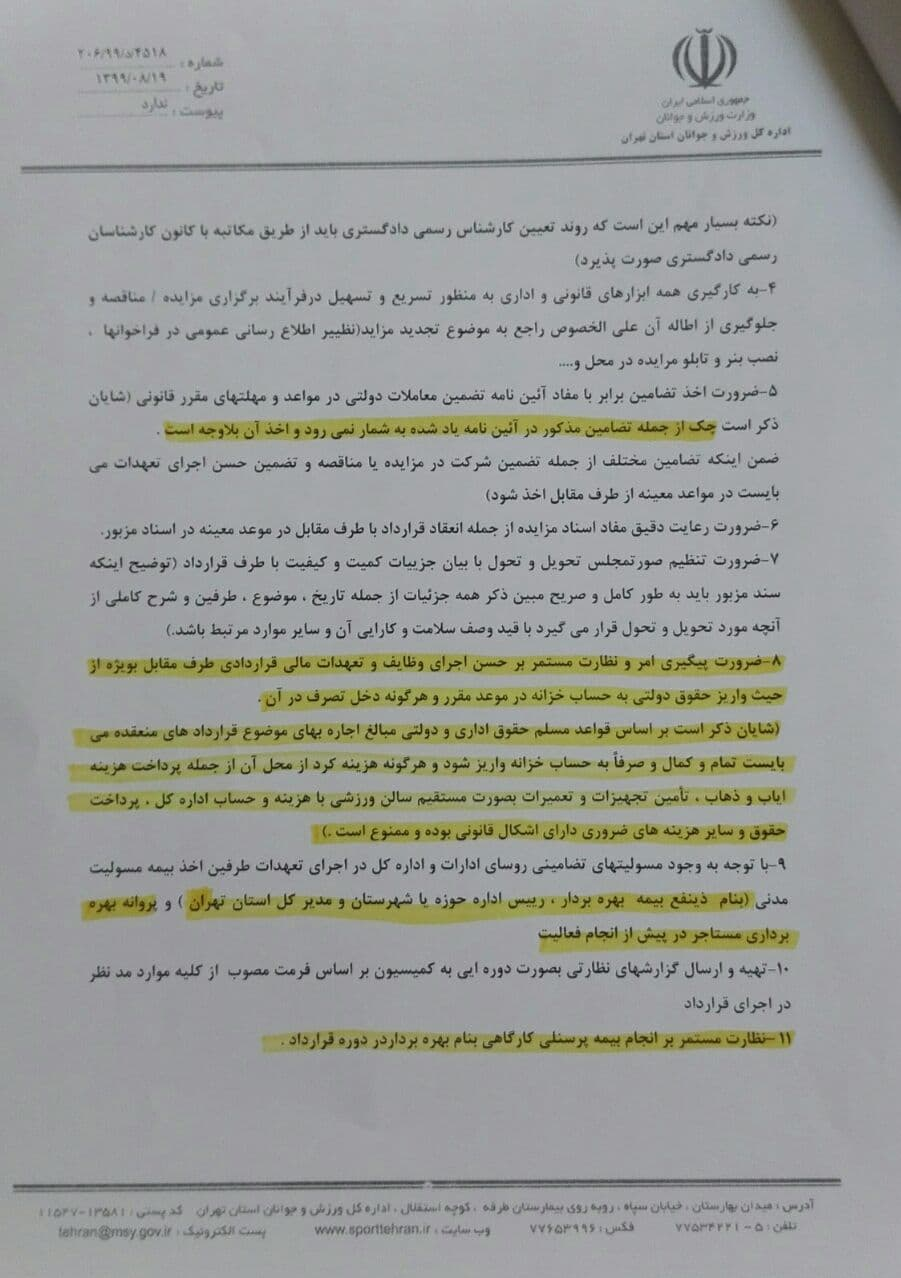 جمهوری اسلامی ایران
وزارت ورزش و جوانان
اداره کل ورزش و جوانان استان تهران
شماره : ۲۰۶/۹۹/د/۴۵۱۸
تاریخ : ۱۳۹۹/۰۸/۱۹
پیوست : ندارد
(نکته بسیار مهم این است که روند تعیین کارشناس رسمی دادگستری باید از طریق مکاتبه با کانون کارشناسان
رسمی دادگستری صورت پذیرد)
۴-به کارگیری همه ابزارهای قانونی و اداری به منظور تسریع و تسهیل درفرآیند برگزاری مزایده / مناقصه و
جلوگیری از اطاله آن علی الخصوص راجع به موضوع تجدید مزاید(نظییر اطلاع رسانی عمومی در فراخوانها ،
نصب بنر و تابلو مرایده در محل و....
۵-ضرورت اخذ تضامین برابر با مفاد آئین نامه تضمین معاملات دولتی در مواعد و مهلتهای مقرر قانونی (شایان
ذکر است چک از جمله تضامین مذکور در آئین نامه یاد شده به شمار نمی رود و اخذ آن بلاوجه است .
ضمن اینکه تضامین مختلف از جمله تضمین شرکت در مزایده یا مناقصه و تضمین حسن اجرای تعهدات می
بایست در مواعد معینه از طرف مقابل اخذ شود)
۶-ضرورت رعایت دقیق مفاد اسناد مزایده از جمله انعقاد قرارداد با طرف مقابل در موعد معینه در اسناد مزبور.
۷-ضرورت تنظیم صورتمجلس تحویل و تحول با بیان جزییات کمیت و کیفیت با طرف قرارداد (توضیح اینکه
سند مزبور باید به طور کامل و صریح مبین ذکر همه جزئیات از جمله تاریخ ، موضوع ، طرفین و شرح کاملی از
آنچه مورد تحویل و تحول قرار می گیرد با قید وصف سلامت و کارایی آن و سایر موارد مرتبط باشد.)
۸-ضرورت پیگیری امر و نظارت مستمر بر حسن اجرای وظایف و تعهدات مالی قراردادی طرف مقابل بویژه از
حیث واریز حقوق دولتی به حساب خزانه در موعد مقرر و هرگونه دخل تصرف در آن .
(شایان ذکر است بر اساس قواعد مسلم حقوق اداری و دولتی مبالغ اجاره بهای موضوع قرارداد های منعقده می
بایست تمام و کمال و صرفاً به حساب خزانه واریز شود و هرگونه هزینه کرد از محل آن از جمله پرداخت هزینه
ایاب و ذهاب ، تأمین تجهیزات و تعمیرات بصورت مستقیم سالن ورزشی با هزینه و حساب اداره کل ، پرداخت
حقوق و سایر هزینه های ضروری دارای اشکال قانونی بوده و ممنوع است .)
۹-با توجه به وجود مسولیتهای تضامینی روسای ادارات و اداره کل در اجرای تعهدات طرفین اخذ بیمه مسولیت
مدنی (بنام ذینفع بیمه بهره بردار ، رییس اداره حوزه یا شهرستان و مدیر کل استان تهران ) و پروانه بهره
برداری مستاجر در پیش از انجام فعالیت
۱۰-تهیه و ارسال گزارشهای نظارتی بصورت دوره ایی به کمیسیون بر اساس فرمت مصوب از کلیه موارد مد نظر
در اجرای قرارداد
۱۱-نظارت مستمر بر انجام بیمه پرسنلی کارگاهی بنام بهره برداردر دوره قرارداد .
آدرس : میدان بهارستان ، خیابان سپاه ، روبه روی بیمارستان طرفه ، کوچه استقلال ، اداره کل ورزش و جوانان استان تهران کد پستی : ۱۳۵۸۱-۱۱۵۴۷
تلفن : ۵ - ۷۷۵۳۴۲۲۱ فکس : ۷۷۶۵۳۹۹۶ وب سایت : www.sporttehran.ir پست الکترونیک : tehran@msy.gov.ir